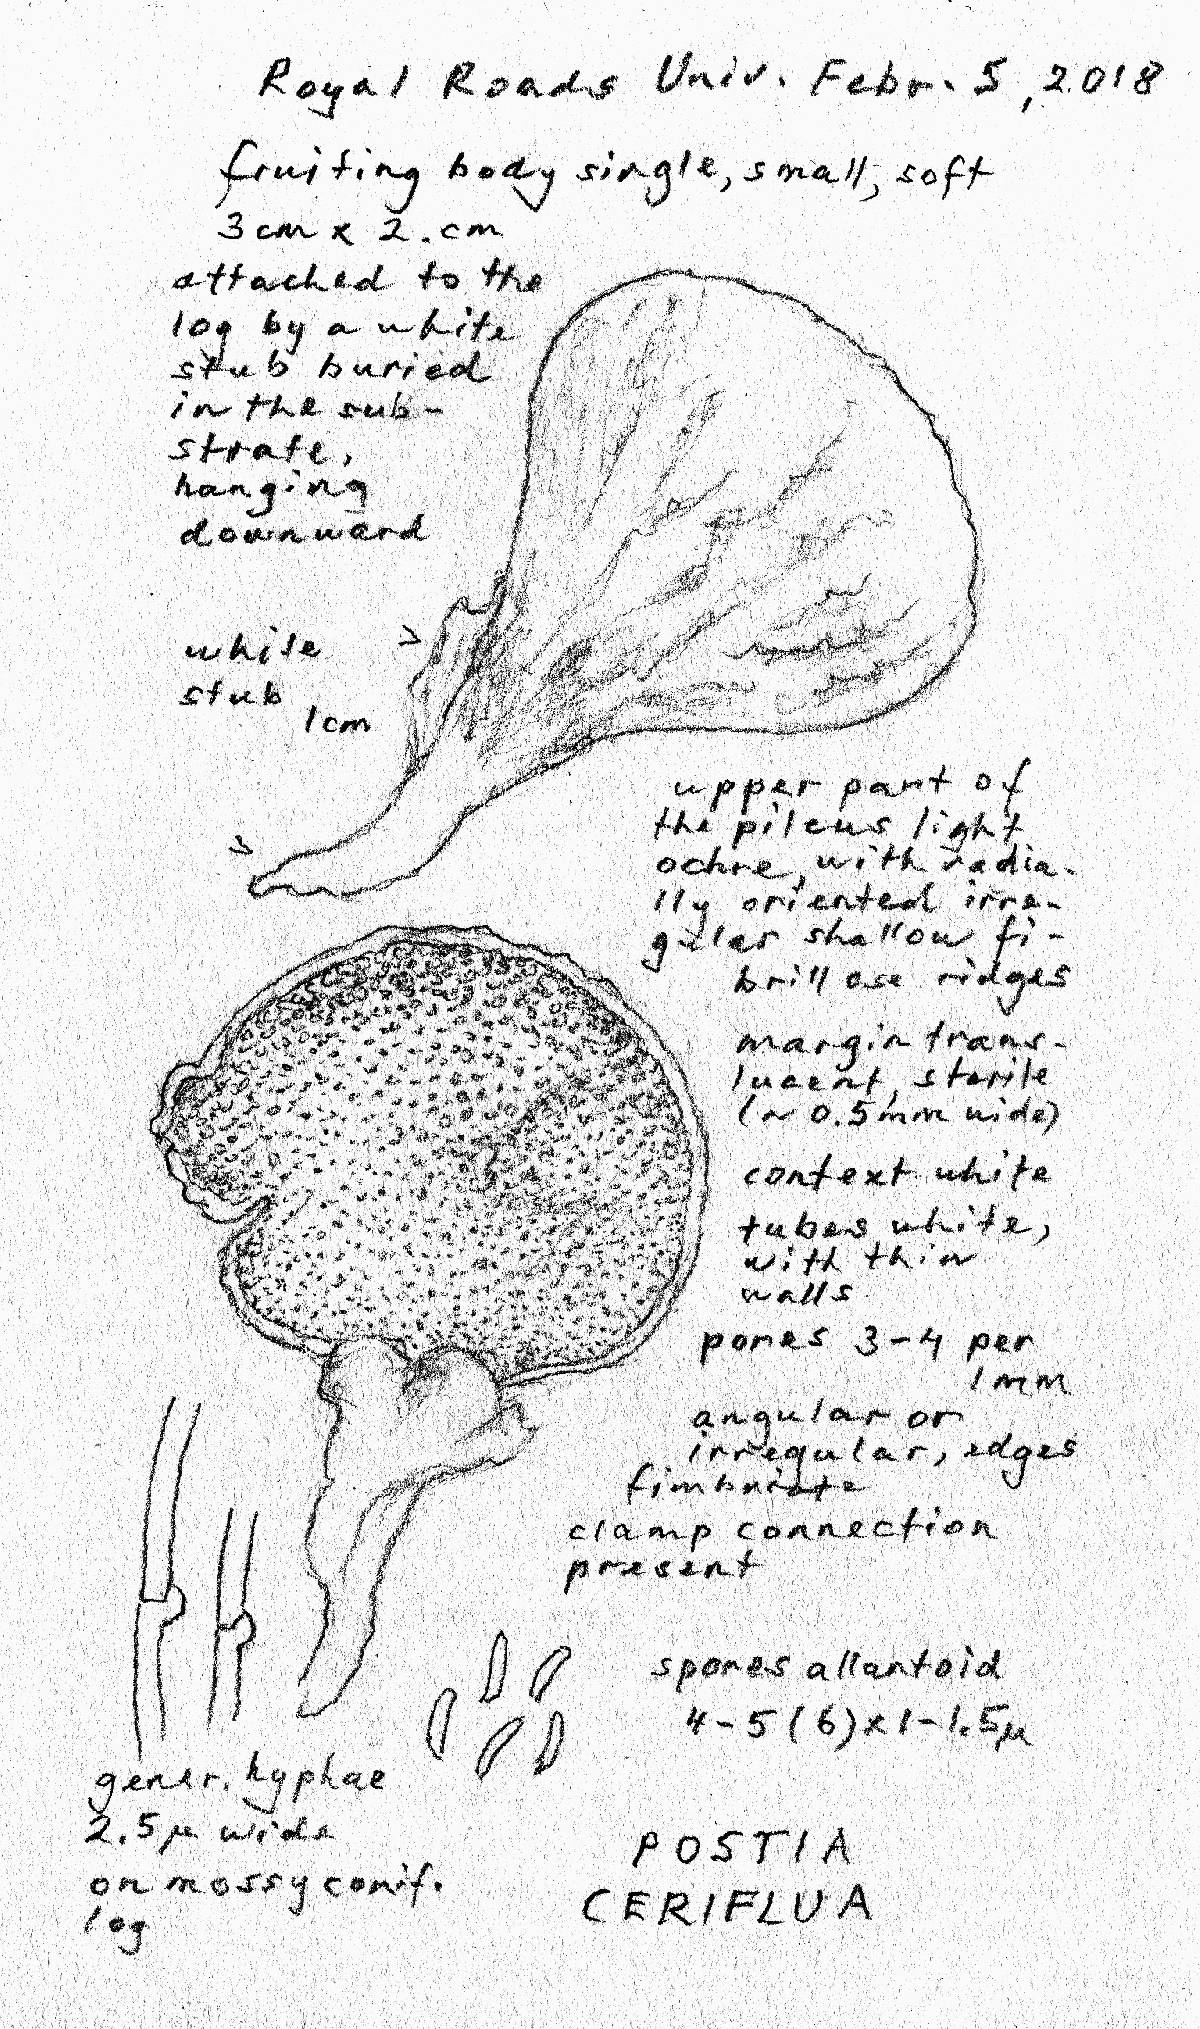 Royal Roads Univ. Febr. 5, 2018
fruiting body single, small, soft
3cm x 2.cm
attached to the
log by a white
stub buried
in the sub-
strate,
hanging
downward
white
stub
1cm
upper part of
the pileus light
ochre, with radia-
lly oriented irre-
gular shallow fi-
brillose ridges
margin trans-
lucent, sterile
(~ 0.5mm wide)
context white
tubes white,
with thin
walls
pores 3-4 per
1mm
angular or
irregular, edges
fimbriate
clamp connection
present
spores allantoid
4-5(6)x1-1.5µ
gener. hyphae
2.5µ wide
on mossy conif.
log
POSTIA
CERIFLUA